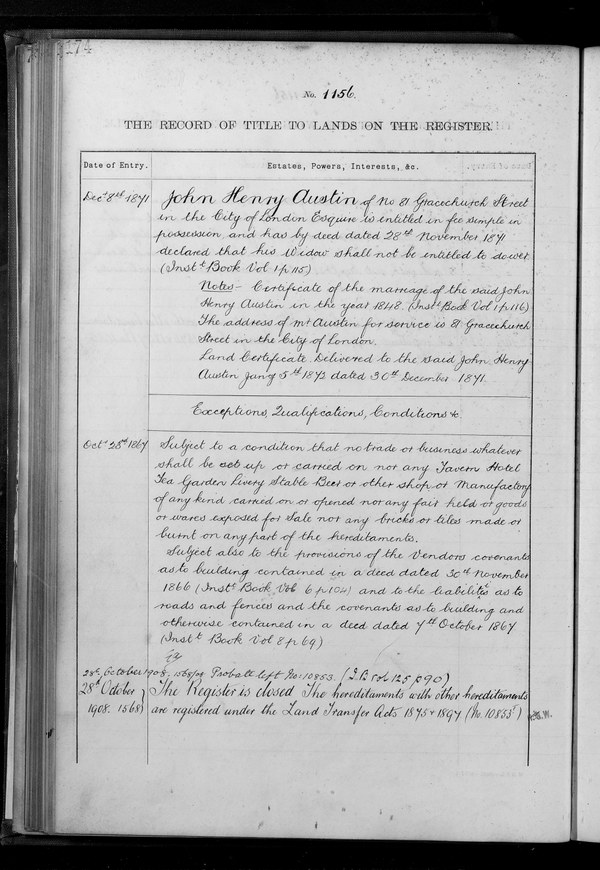 174
No. 1156.
THE RECORD OF TITLE TO LANDS ON THE REGISTER.
Date of Entry.
Estates, Powers, Interests, &c.
Decr 8th 1871
John Henry Austin of No 81 Gracechurch Street
in the City of London Esquire is entitled in fee simple in
possession and has by deed dated 28th November 1871
declared that his Widow shall not be entitled to dower
(Instt Book Vol 1 p 115)
Notes - Certificate of the marriage of the said John
Henry Austin in the year 1848. (Instt Book Vol 1 p 116)
The address of Mr Austin for service is 81 Gracechurch
Street in the City of London.
Land Certificate Delivered to the said John Henry
Austin Jany 5th 1872 dated 30th December 1871.
Exceptions, Qualifications, Conditions &c
Octr 28th 1867
Subject to a condition that no trade or business whatever
shall be set up or carried on nor any Tavern Hotel
Tea Garden Livery Stable Beer or other shop or Manufactory
of any kind carried on or opened nor any fair held or goods
or wares exposed for Sale nor any bricks or tiles made or
burnt on any part of the hereditaments.
Subject also to the provisions of the Vendors covenants
as to building contained in a deed dated 30th November
1866 (Instt Book Vol 6 p 104) and to the liabilities as to
roads and fences and the covenants as to building and
otherwise contained in a deed dated 7th October 1867
(Instt Book Vol 8 p 69)
28th October 1908. 1568/08 Probate left No: 10853. (I.B. vol 125 p 90)
28th October
1908. 1568
The Register is closed The hereditaments with other hereditaments
are registered under the Land Transfer Acts 1875 & 1897 (No. 10853)